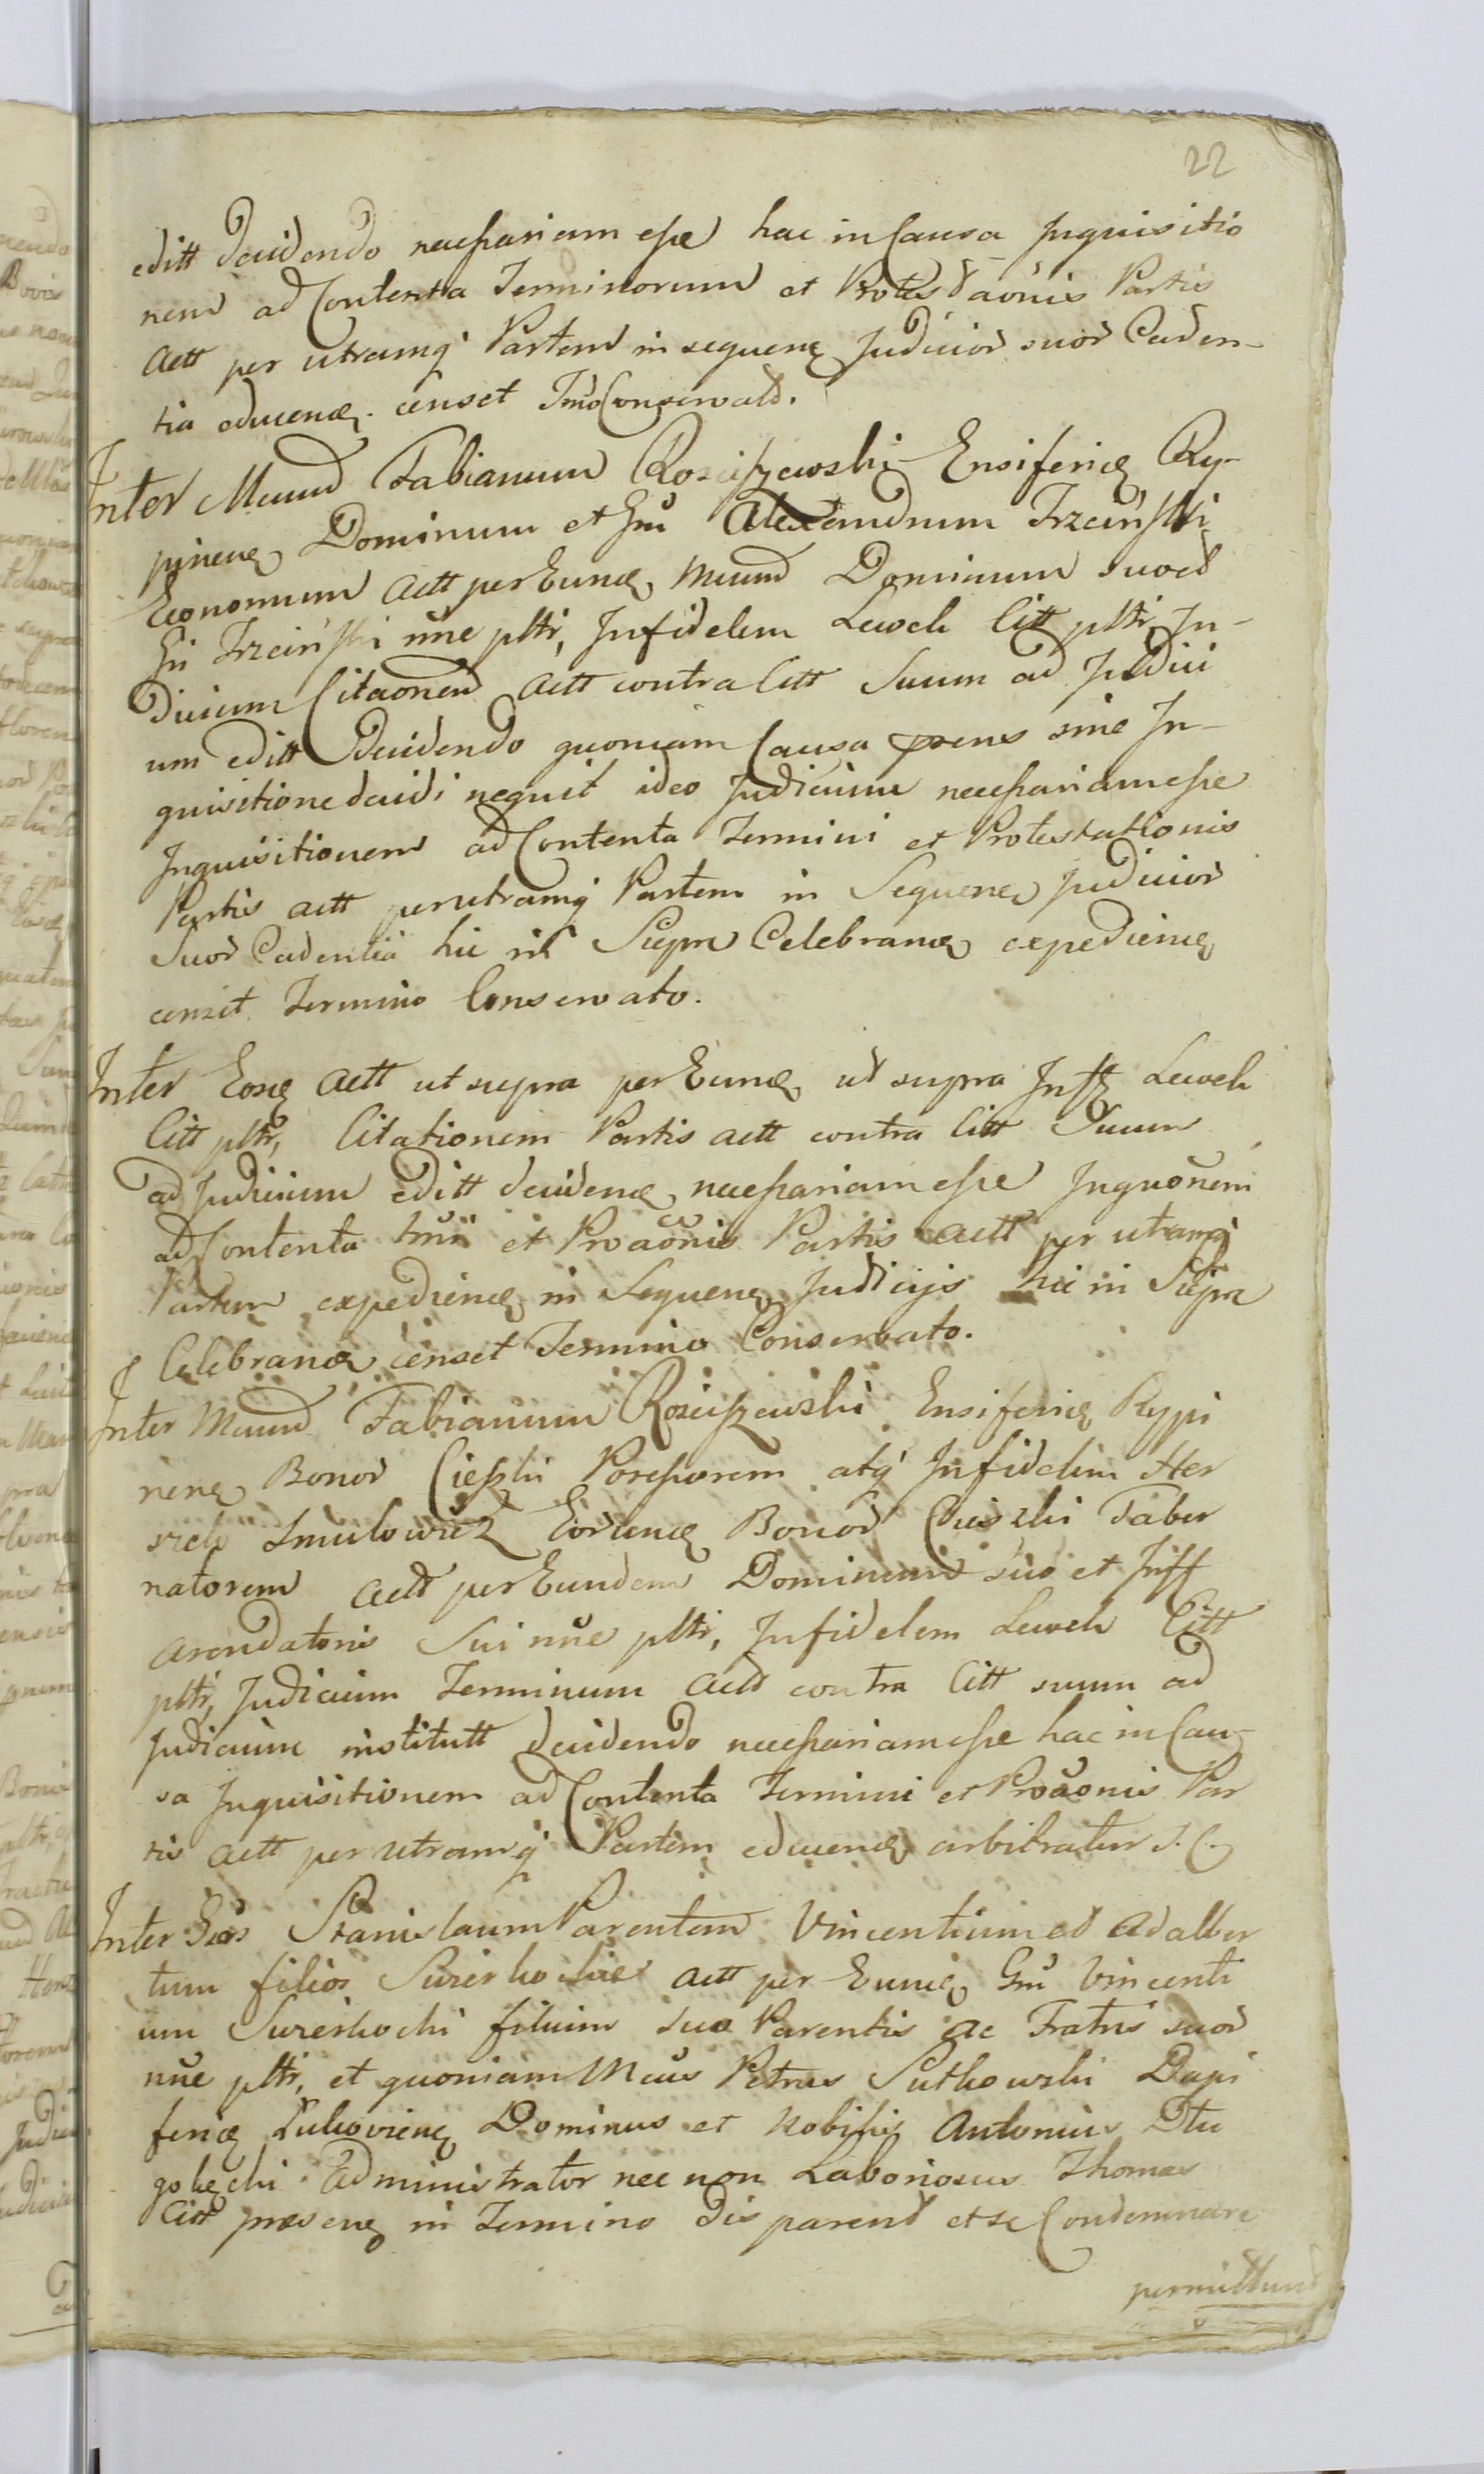 22
editt decidendo necessariam esse hac in Causa Inquisitio
nem ad Contenta Terminorum et Protestaõnis Partis
Actt per utramq Partem in sequenę Judicior suor Caden-
tia educenę. censet Tmõ Conservatt.
Inter Mcum Fabianum Rosciszewski Ensiferię Ry-
pinenę Dominum et Gnũ Alexandrum Trzcinski
Economum Actt per Eunę Mcum Dominum suo et
Gũ Trzcinski nñe pltr, Infidelem Lewek Citt pltr, Ju-
dicium Citaonem Actt contra Citt Suum ad Judici
um editt Decidendo quoniam Causa prens sine In-
quisitione decidi nequit ideo Judicium necessariam esse
Inquisitionem ad Contenta Termini et Protestationis
Partis actt per utramq Partem in Sequenę Judicior
Suor Cadentia hic in Sieprc Celebranę expedienę
censet Termino Conservato.
Inter Eosę Actt ut supra per Eunę ut supra Inff Lewek
Citt pltr, Citationem Partis actt contra Citt Suum
ad Judicium editt decidenę necessariam esse Inquõnem
ad Contenta tmii et Proaõnis Partis actt per utramq
Partem expedienę in Sequenę Judicijs hic in Sieprc
Celebranę censet Termino Conservato.
Inter Mcum Fabianum Rosciszewski Ensiferię Rypi
nenę Bonor Cieszki Possessorem atq Infidelim Her
szek Smulowicz Eorunę Bonor Cieszki Taber
natorem Actt per Eundem Dominum suo et Inff
Arendatoris Sui nñe pltr, Infidelem Lewek Citt
pltr, Judicium Terminum Actt contra Citt suum ad
Judicium institutt decidendo necessariam esse hac in Cau-
sa Inquisitionem ad Contenta Termini et Proaõnis Par
tis actt per utramq Partem educenę arbitratur T. C.
Inter Gños Stanislaum Parentem Vincentium et Adalber
tum filios Suzerkockie actt per Eunę Gnũ Vincenti
um Suzerkocki filium suo Parentis ac Fratris suor
nñe pltr, et quoniam Mcus Petrus Sutkowski Dapi
ferię Lukovienę Dominus et Nobilis Antonius Dłu
golęcki Administrator nec non Laboriosus Thomas
Citt praesenę in Termino dis parend et se Condemnare
permittunt